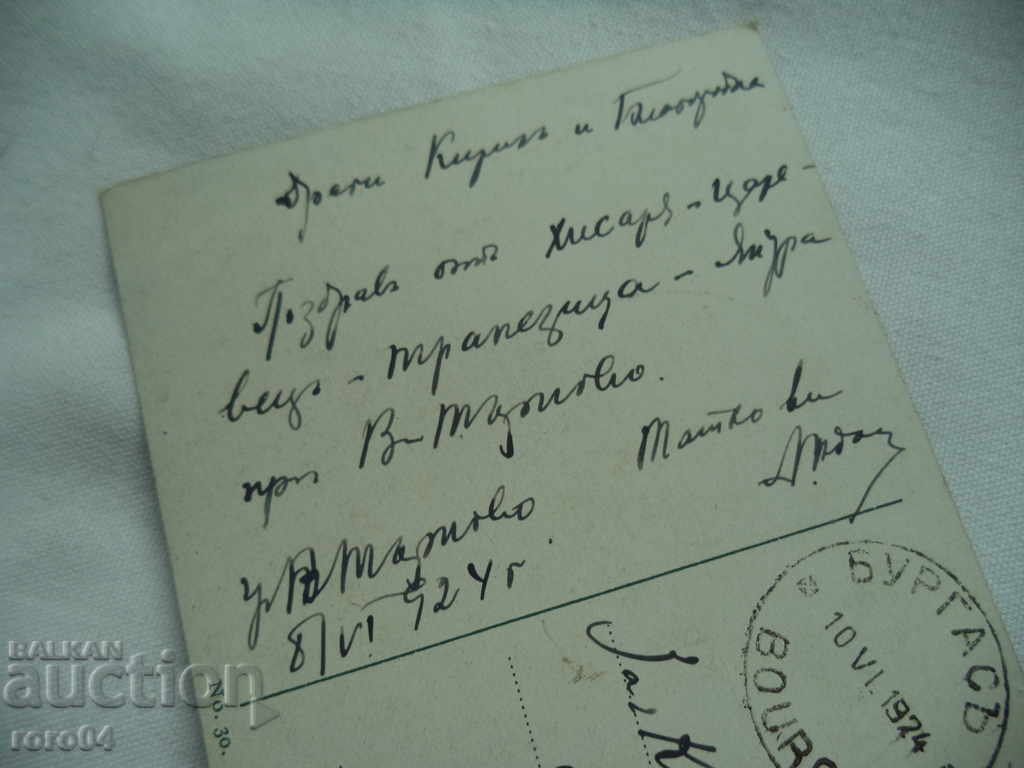 Драги Кирилъ и
Поздравъ отъ Хисаря - Царе-
вецъ - Трапезица - Янтра
при В. Търново.
Татко ви
В Търново
8/VI 924 г
No. 30.
БУРГАСЪ
10 VI. 1924
BOURG
BALKAN
auction
roro04